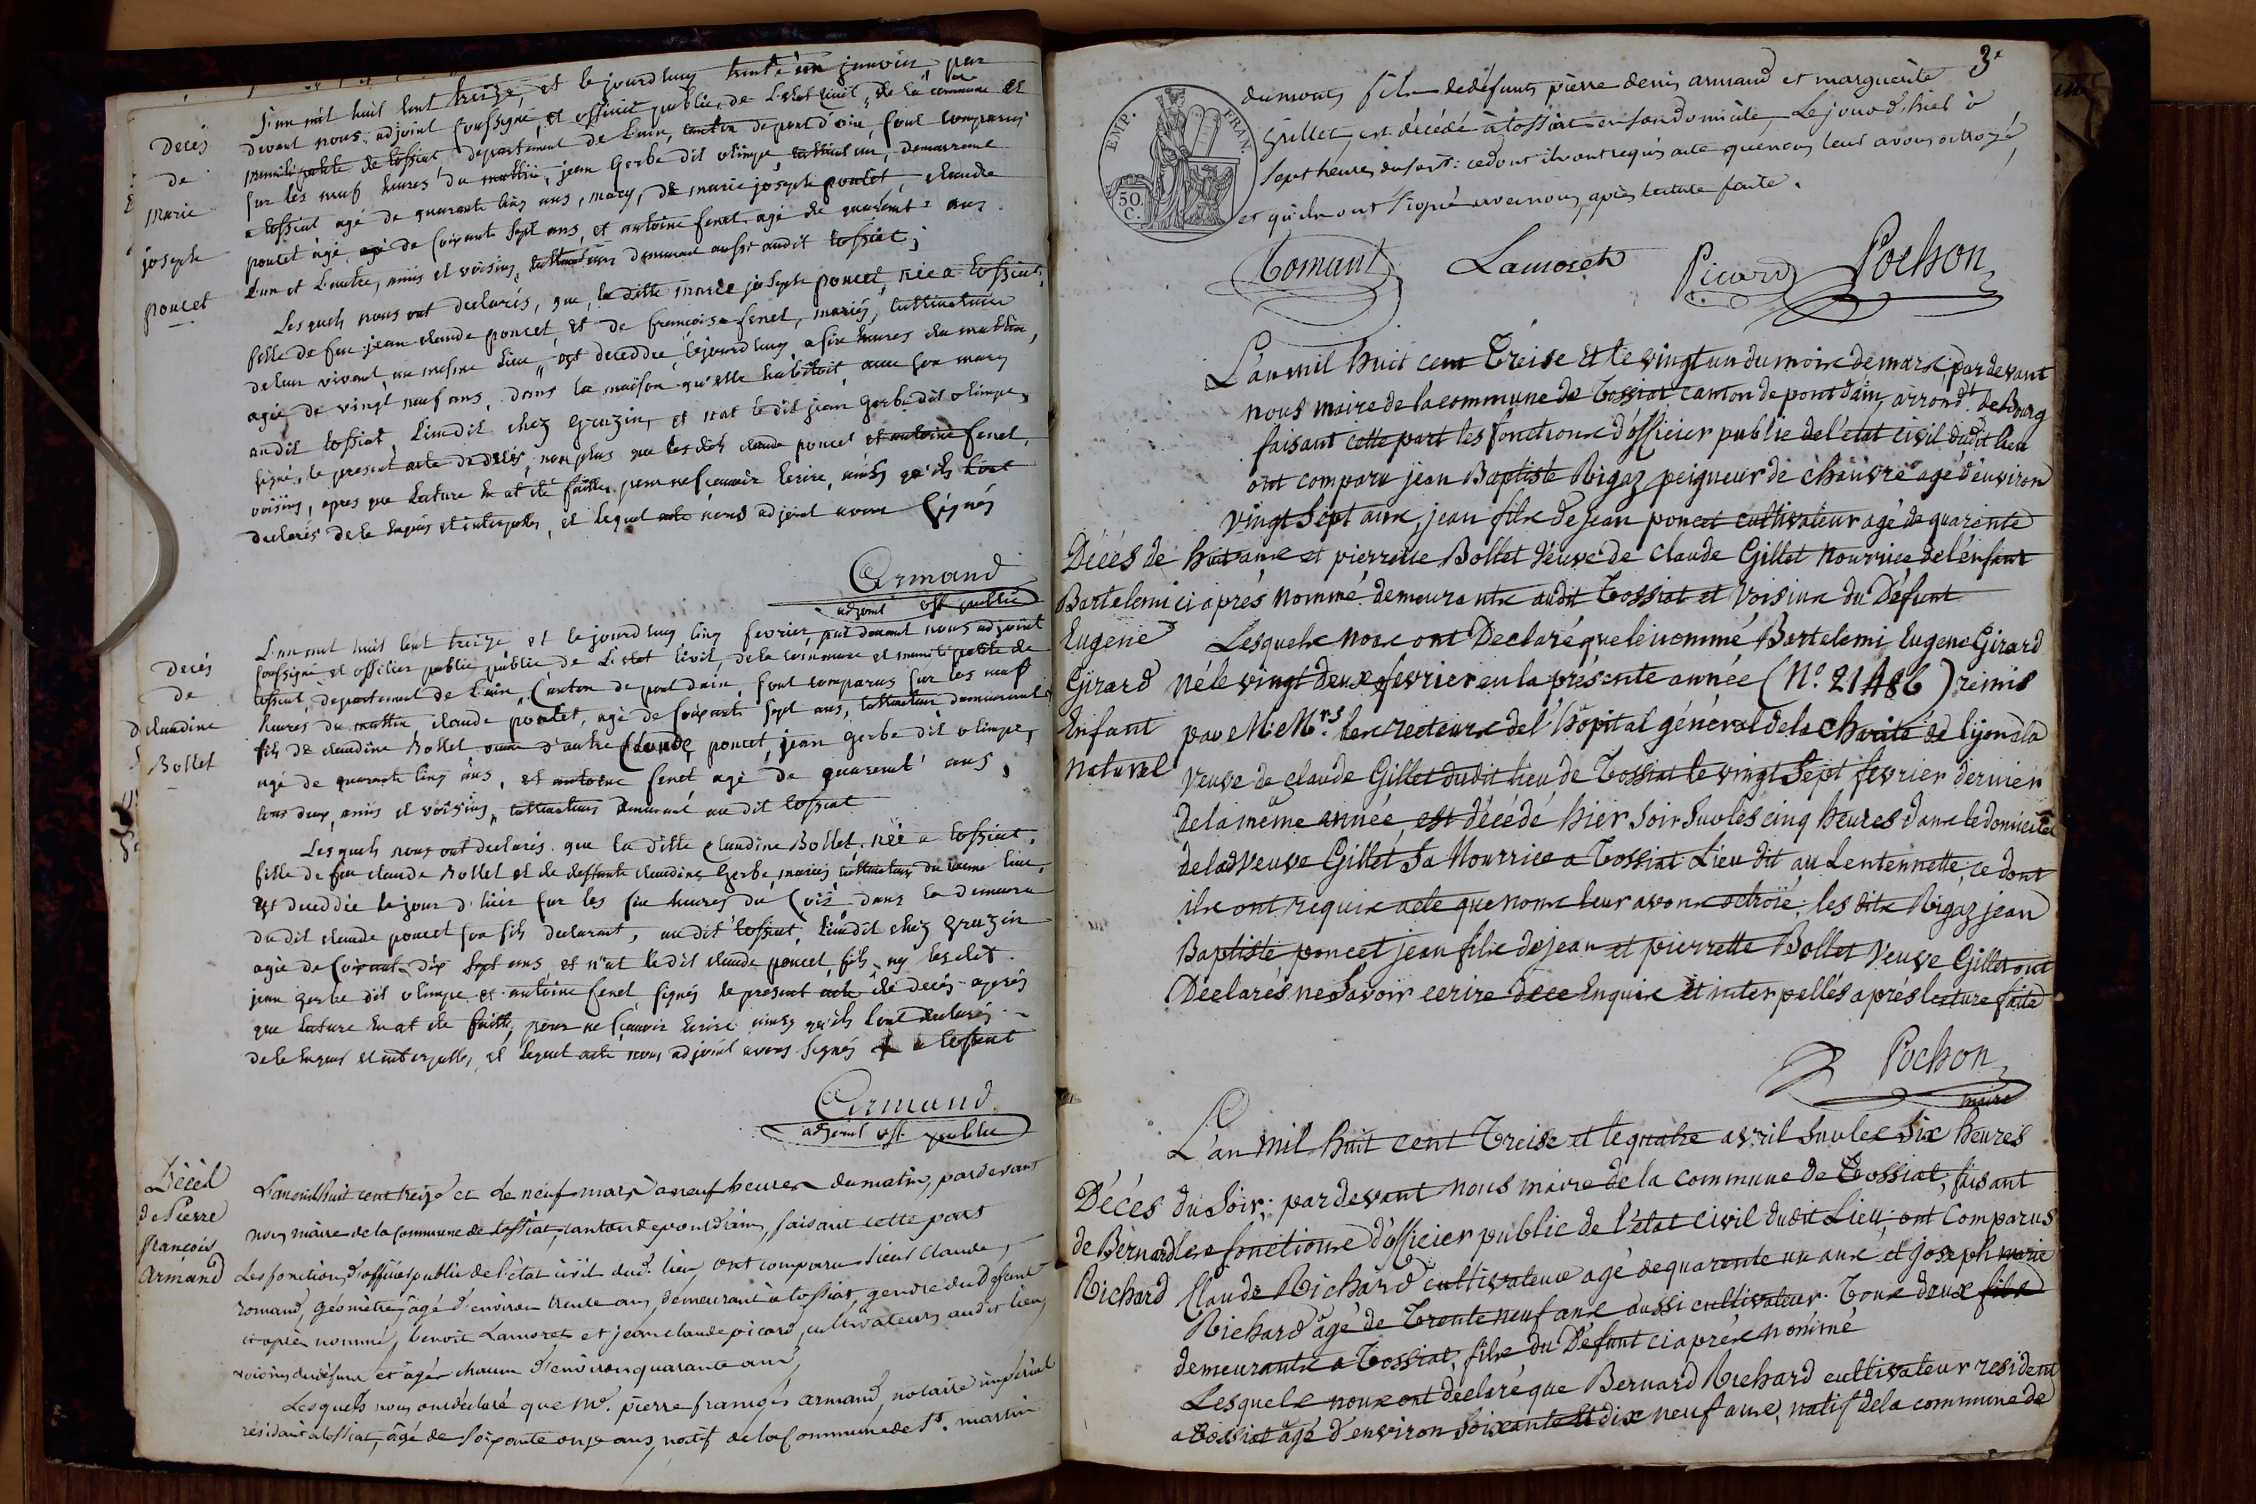 Decès
de
Marie
joseph
poncet
L'an mil huit cent treize, et le jourd'huy trente un janvier par
devant nous, adjoint soussigné, et officier public, de L'etat civil, de la commune et
municipalité de tossiat, departement de L'ain, canton de pont d'ain, sont comparus
sur les neuf heures du mattin, jean Gerbe dit olimpe, demeurant
a tossiat agé de quarante cinq ans, mary, de marie joseph poncet, claude
poncet agé de soixante sept ans, et antoine fenet agé de quarente ans
L'un et L'autre, amis et voisins, demeurant aussi audit tossiat;
Lesquels nous ont declarés, que, la ditte marie joseph poncet, née a tossiat,
fille de feu jean claude poncet, et de françoise fenet, mariés, cultivateurs
de leur vivant, au mesme Lieu, est deceddée, lejourd'huy a six heures du mattin,
agée de vingt neuf ans, dans la maison qu'elle habitoit, avec son mary
audit tossiat, Lieudit chez gruzin, et n'at le dit jean gerbe dit olimpe,
signé, le present acte de decès, non plus que les dits claude poncet et antoine fenet,
voisins, apres que Lecture en at été faitte, pour ne sçavoir Ecrire, ainsy qu'ils L'ont
declarés de ce Enquis et interpellés, et lequel acte nous adjoint avons signés
Armand
adjoint off. public
Decés
de
claudine
Bollet
L'an mil huit cent treize et le jourd'huy cinq fevrier, par devant nous adjoint
soussigné et officier public public de L'etat civil, de la commune et municipalité de
tossiat, departement de L'ain, Canton de pont dain, sont comparus sur les neuf
heures du mattin claude poncet, agé de soixante sept ans, cultivateur demeurant
fils de claudine Bollet claude poncet, jean gerbe dit olimpe,
agé de quarante cinq ans, et antoine fenet agé de quarent' ans,
tous deux, amis et voisins, cultivateurs demeurant au dit tossiat
Lesquels nous ont declarés que la ditte claudine Bollet, née a tossiat,
fille de feu claude Bollet et de deffunte claudine Gerbe, mariés cultivateurs du meme lieu,
est deceddée le jour d'hier sur les six heures du soir dans la demeure
du dit claude poncet son fils declarant, au dit tossiat, Lieudit chez gruzin
agée de soixante dix sept ans, et n'at le dit claude poncet, fils, ny les dits
jean gerbe dit olimpe et antoine fenet signés le present acte de decés apprés
que lecture en at été faitte, pour ne sçavoir Ecrire ainsy qu'ils L'ont declarés
de ce Enquis et interpellés, et lequel acte nous adjoint avons signés a tossiat
Armand
adjoint off. public
Décès
de Pierre
françois
Armand
L'an mil huit cent treize et le neuf mars a neuf heures du matin, par devant
nous maire de la Commune de tossiat, canton de pont d'ain, faisant cette part
les fonctions d'officier public de l'état civil dud. lieu, ont comparu sieurs Claude
romand, géomètre, âgé d'environ trente ans, demeurant à tossiat, gendre du Défunt
ci-après nommé, benoit Lamoret et jean claude picard, cultivateurs audit lieu,
voisins du défunt et âgés chacun d'environ quarante ans,
Lesquels nous ont déclaré que Mr. pierre françois armand, notaire impérial
résidant à tossiat, âgé de soixante onze ans, natif de la Commune de St. martin
3e
EMP.
FRAN.
50
C.
dumont, fils de défunts pierre denis armand et marguerite
Grillet, est décédé à tossiat en son domicile, Le jour d'hier à
sept heures du soir: ce dont ils ont requis acte que nous leur avons octroyé,
et qu'ils ont signé avec nous, après lecture faite.
Romand
Lamoret
Picard
Pochon
L'an mil huit cent Treise et le vingt un du mois de mars; par devant
nous maire de la commune de Tossiat canton de pont d'ain, arrond.t de Bourg
faisant cette part les fonctions d'officier public de l'etat civil dudit lieu
ont comparu jean Baptiste Rigaz peigneur de chanvre agé d'environ
vingt sept ans, jean fils de jean poncet cultivateur agé de quarente
Décés de
Bartelemi
Eugene
Girard
Enfant
Naturel
huit ans et pierrette Bollet Veuve de Claude Gillet Nourrice de l'énfant
ci aprés Nommé demeurants audit Tossiat et Voisins du Défunt
Lesquels nous ont Declaré que le nommé Bartelemi Eugene Girard
né le vingt deux fevrier en la présente année (N.º 21486) remis
par MM.rs les recteurs de l'hôpital général de la Charité de lyon à la
veuve de claude Gillet dudit lieu de Tossiat le vingt Sept fevrier dernier
de la même année, est décédé hier Soir Sur les cinq heures dans le domicile
de la d Veuve Gillet sa Nourrice a Tossiat Lieu dit au Lentennette; ce dont
ils ont requis acte que nous leur avons octroïé; les dits Rigaz jean
Baptiste poncet jean fils de jean et pierrette Bollet Veuve Gillet ont
Déclarés ne Savoir ecrire de ce Enquis et interpellés aprés lecture faite
Pochon
maire
Décès
de Bernard
Richard
L'an mil huit cent Treise et le quatre avril Sur les Six heures
du Soir; par devant nous maire de la commune de Tossiat, faisant
les fonctions d'officier public de l'état civil dudit Lieu; ont Comparus
Claude Richard cultivateur agé de quarente un ans et joseph marie
Richard âgé de Trente neuf ans aussi cultivateur. Tous deux fils
demeurants a Tossiat, fils du Défunt ci aprés nommé
Lesquels nous ont declaré que Bernard Richard cultivateur resident
a Tossiat âgé d'environ Soixante et dix neuf ans, natif de la commune de